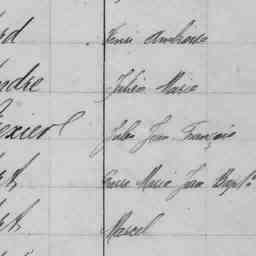 rd Henri Ambrose
ndre Julien Marie
exier Jules Jean François
et Pierre Marie Jean Bapte
et Marcel